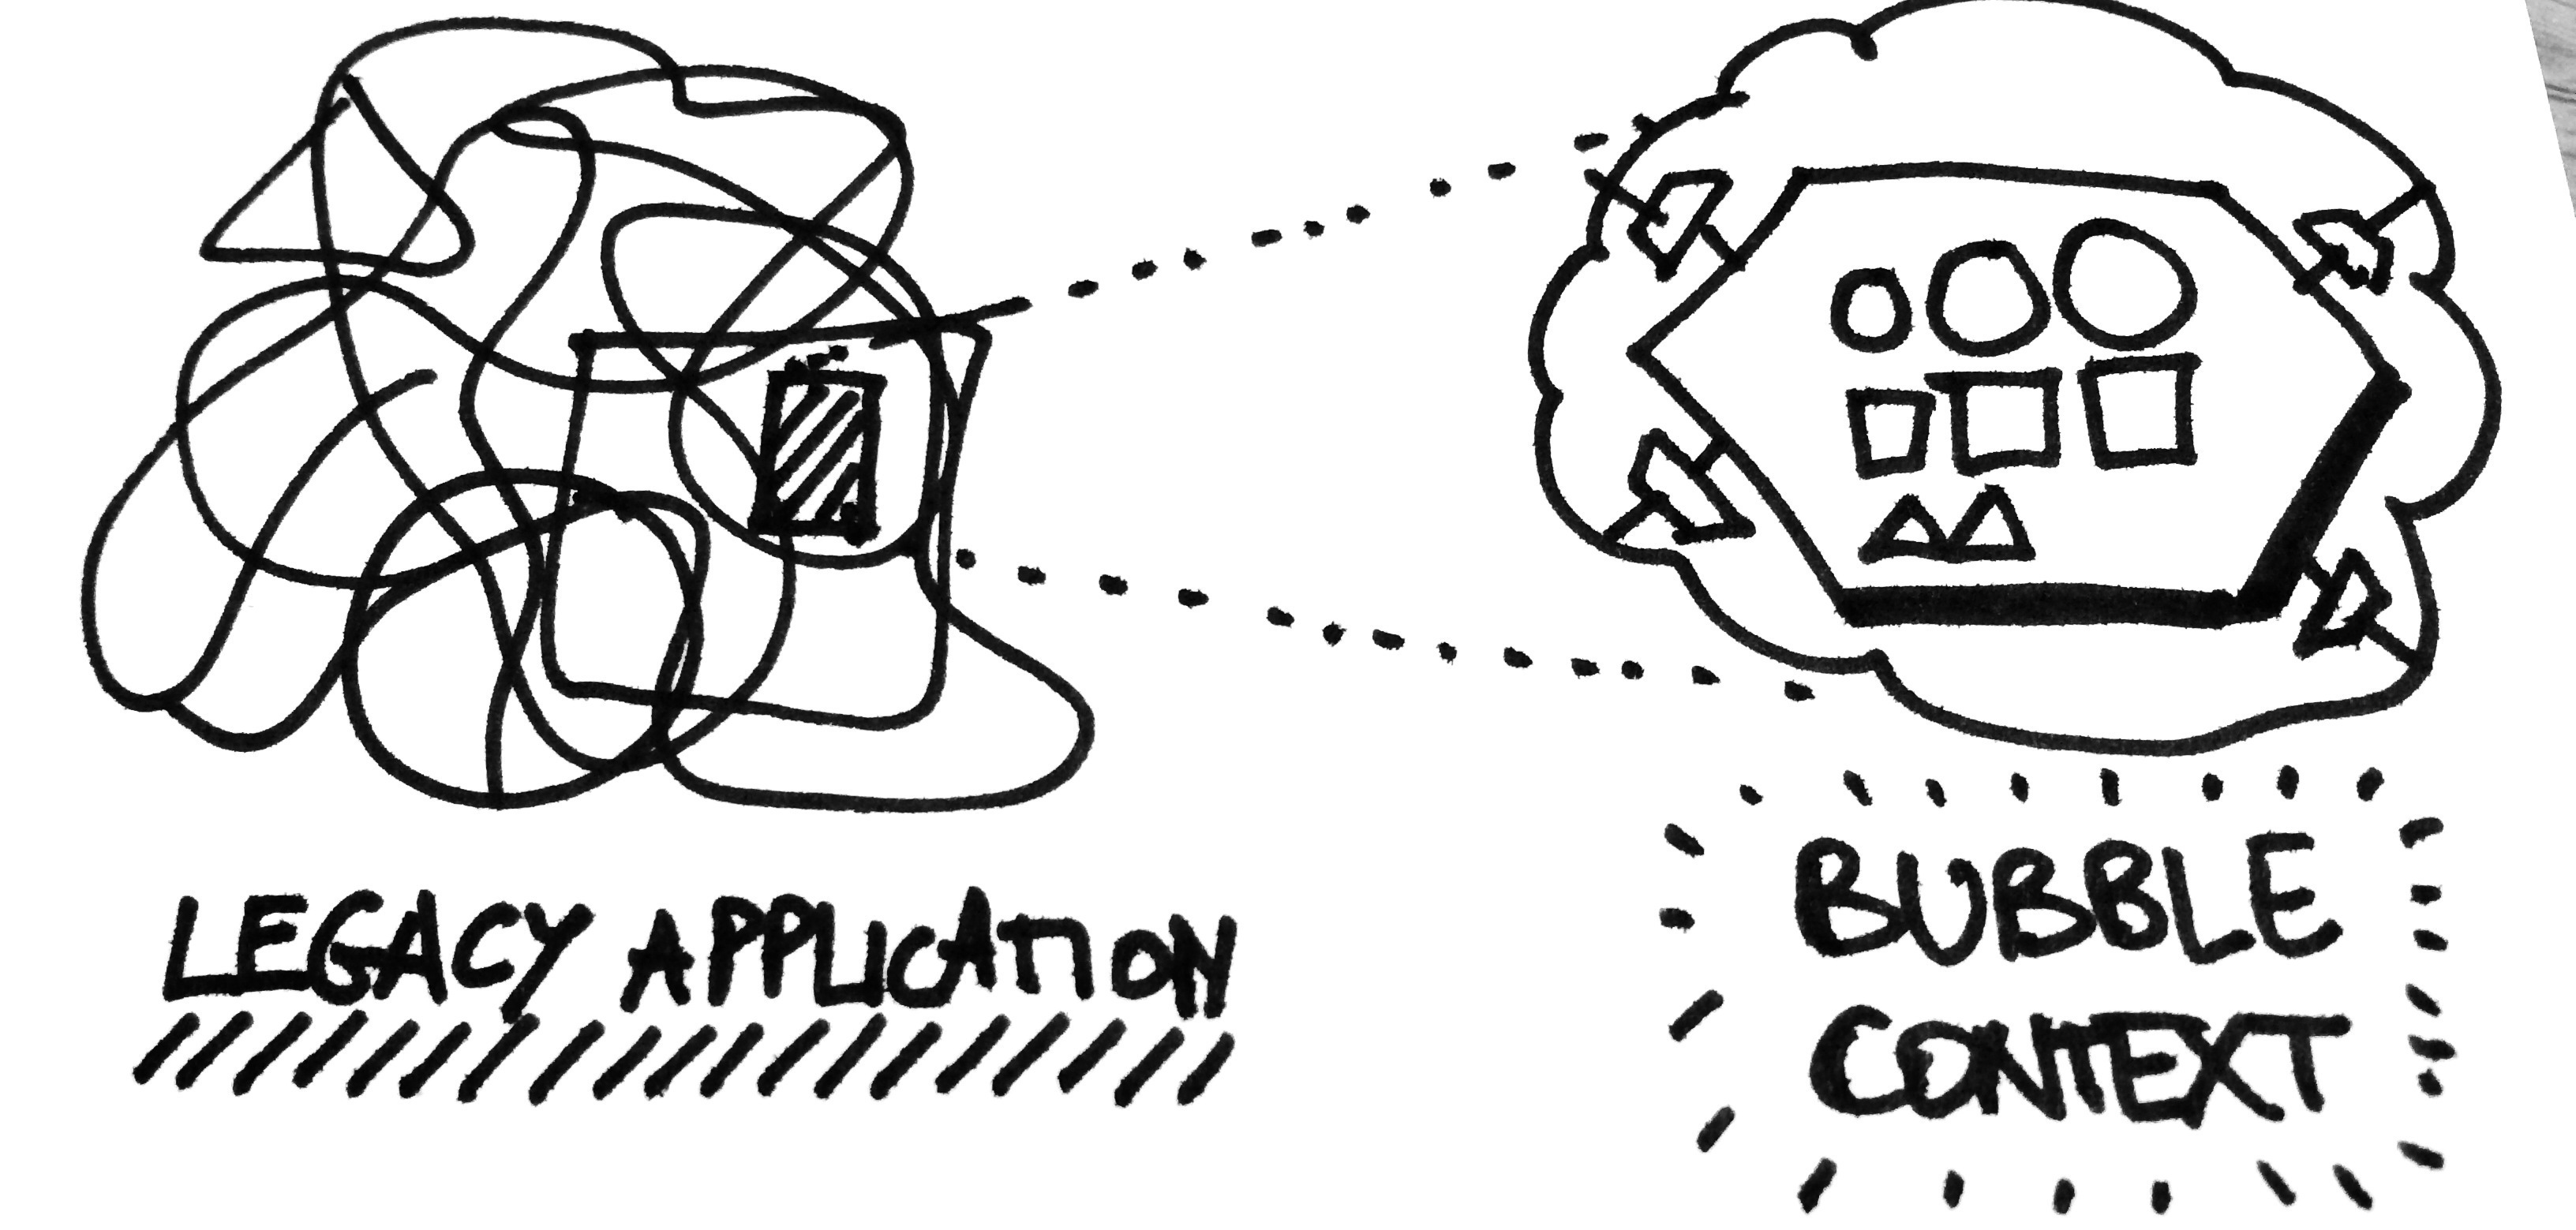 LEGACY APPLICATION
BUBBLE
CONTEXT